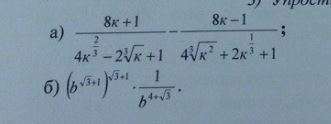 3) Упрост
а) \frac{8к+1}{4к^{\frac{2}{3}}-2\sqrt[3]{к}+1} - \frac{8к-1}{4\sqrt[3]{к^2}+2к^{\frac{1}{3}}+1};
б) (b^{\sqrt{3}+1})^{\sqrt{3}+1} \cdot \frac{1}{b^{4+\sqrt{3}}}.